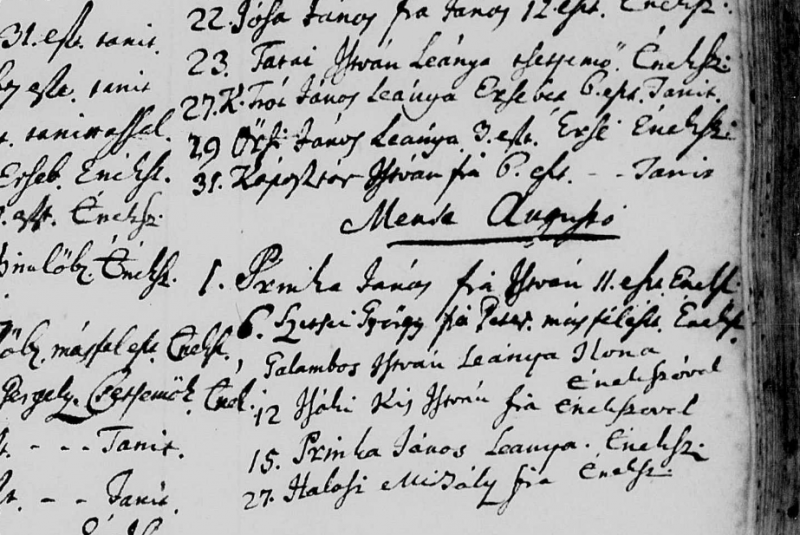 31. est. tanit.
est. tanit
tanitassal.
Erseb. Eneksz.
est. Éneksz.
Éneksz.
másfel est. Éneksz.
Gergely. Csetsemök. Enek.
- - - Tanit.
- - Tanit.
22. Jósa János fia János 12. est. Éneksz:
23. Tatai István Leánya tsetsemö. Éneksz:
27. K. Tót János Leánya Ersebet 6. est. Tanit.
29 Örsi János Leánya 3. est. Ersé Éneksz:
31. Káposztás István fia 6. est. - - Tanit
Mense Augusto
1. Prinka János fia István 11. est. Eneksz.
6. Szetsei György fia Péter másfélest. Éneksz.
Galambos István Leánya Ilona
Énekszóval
12 Jsáki Kis István fia Énekszovel
15. Prinka János Leánya. Éneksz:
27. Halasi Mihály fia Éneksz: